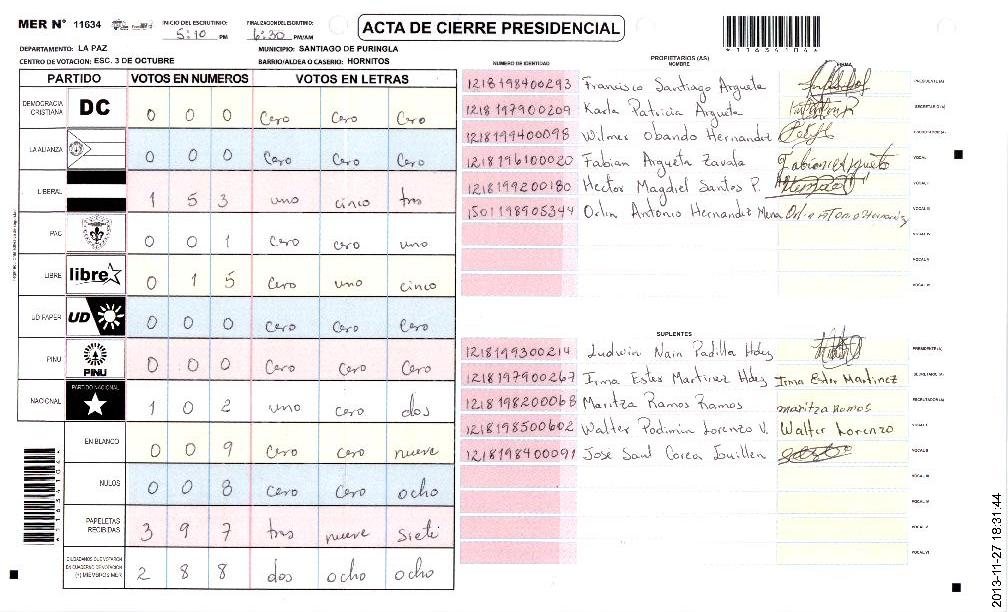 MER N° 11634
INICIO DEL ESCRUTINIO: 5:10 PM
FINALIZACION DEL ESCRUTINIO: 6:30 PM/AM
ACTA DE CIERRE PRESIDENCIAL
*11634104*
DEPARTAMENTO: LA PAZ
MUNICIPIO: SANTIAGO DE PURINGLA
CENTRO DE VOTACION: ESC. 3 DE OCTUBRE
BARRIO/ALDEA O CASERIO: HORNITOS
PARTIDO VOTOS EN NUMEROS VOTOS EN LETRAS
DEMOCRACIA CRISTIANA DC 0 0 0 Cero Cero Cero
LA ALIANZA 0 0 0 Cero Cero Cero
LIBERAL 1 5 3 uno cinco tres
PAC 0 0 1 Cero cero uno
LIBRE libre 0 1 5 Cero uno cinco
UD FAPER UD 0 0 0 Cero Cero Cero
PINU PINU 0 0 0 Cero Cero Cero
NACIONAL PARTIDO NACIONAL 1 0 2 uno cero dos
EN BLANCO 0 0 9 Cero Cero nueve
NULOS 0 0 8 cero cero ocho
PAPELETAS RECIBIDAS 3 9 7 tres nueve siete
CIUDADANOS QUE VOTARON EN CUADERNO DE VOTACION (+) MIEMBROS MER 2 8 8 dos ocho ocho
PROPIETARIOS (AS)
NUMERO DE IDENTIDAD NOMBRE FIRMA
1218198400293 Francisco Santiago Argueta PRESIDENTE (A)
1218197900209 Karla Patricia Argueta SECRETARIO (A)
1218199400098 Wilmer Obando Hernandez ESCRUTADOR (A)
1218196100020 Fabian Argueta Zavala Fabian Argueta VOCAL I
1218199200180 Hector Magdiel Santos P. VOCAL II
1501198905344 Orlin Antonio Hernandez Mena VOCAL III
VOCAL IV
VOCAL V
VOCAL VI
SUPLENTES
1218199300214 Ludwin Nain Padilla Hdez PRESIDENTE (A)
1218197900267 Irma Ester Martinez Hdez Irma Ester Martinez SECRETARIO (A)
1218198200068 Maritza Ramos Ramos maritza Ramos ESCRUTADOR (A)
1218198500602 Walter Lorenzo V. Walter Lorenzo VOCAL I
1218198400091 Jose Saul Corea VOCAL II
VOCAL III
VOCAL IV
VOCAL V
VOCAL VI
*11634104*
2013-11-27 18:31:44